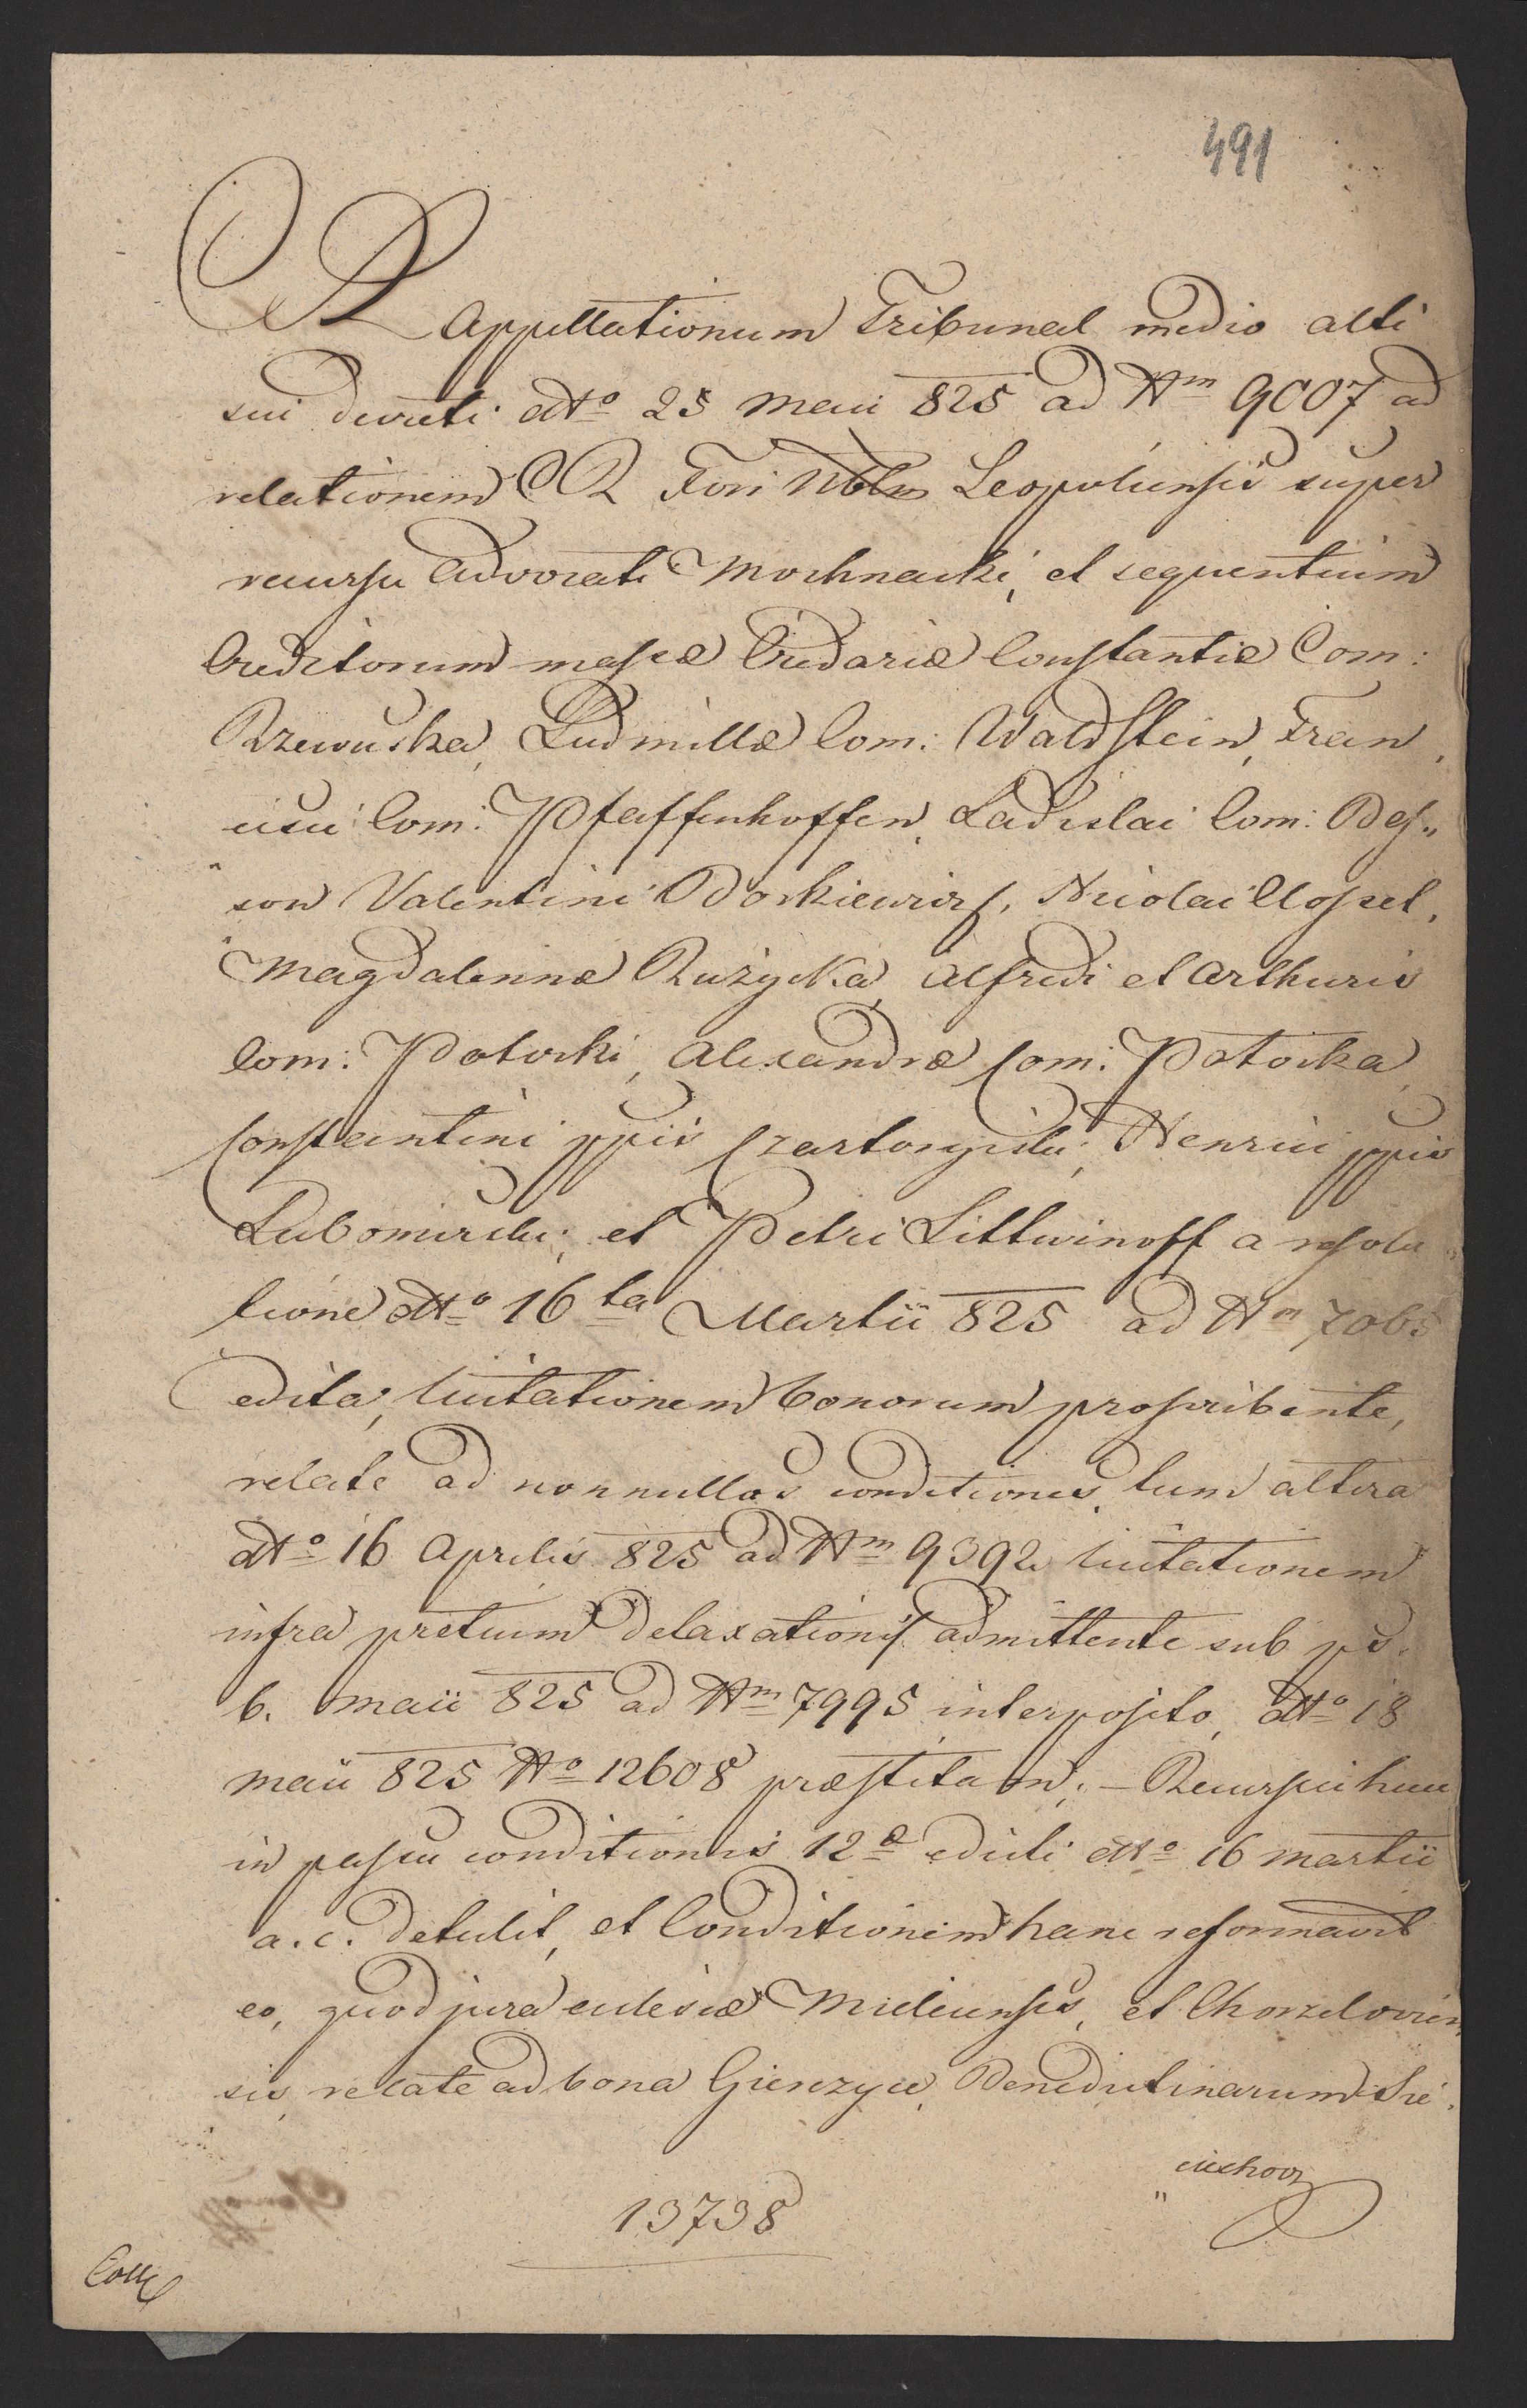 491
CR Appellationum Tribunal medio alti
sui decreti dtto 25 Maii 825 ad Nm 9007 ad
relationem CR Fori Nblm Leopoliensis super
recursu Advocati Mochnacki, et sequentium
Creditorum massæ Cridariæ Constantiæ Com:
Rzewuska, Ludmillæ Com: Waldstein, Fran„
cisci Com: Pfaffenhoffen, Ladislai Com: Bes„
„son Valentini Borkiewicz, Nicolai
Magdalennæ Rużycka, Alfredi et Arthuris
Com: Potocki, Alexandræ Com: Potocka,
Constantini ppis Czartoryski, Henrici ppis
Lubomirski; et Petri Littwinoff a resolu„
tione dtto 16ta Martii 825 ad Nm 7065
edita, licitationem bonorum proscribente,
relate ad nonnullas conditiones, tum altera
dtto 16 Aprilis 825 ad Nm 9392 licitationem
infra pretium detaxationis admittente sub ps.
6. Maii 825 ad Nm 7995 interposito, dtto 18
Maii 825 No 12608 præstitam; – Recursui huic
in passu conditionis 12æ edicti dtto 16 Martii
a.c. detulit, et Conditionem hanc reformavit
eo, quod jura ecclesiæ Mielicensis, et Chorzelovien
sis, relate ad bona Gienzyce, Benedictinarum Sie„
„ciechov
13738
Coll